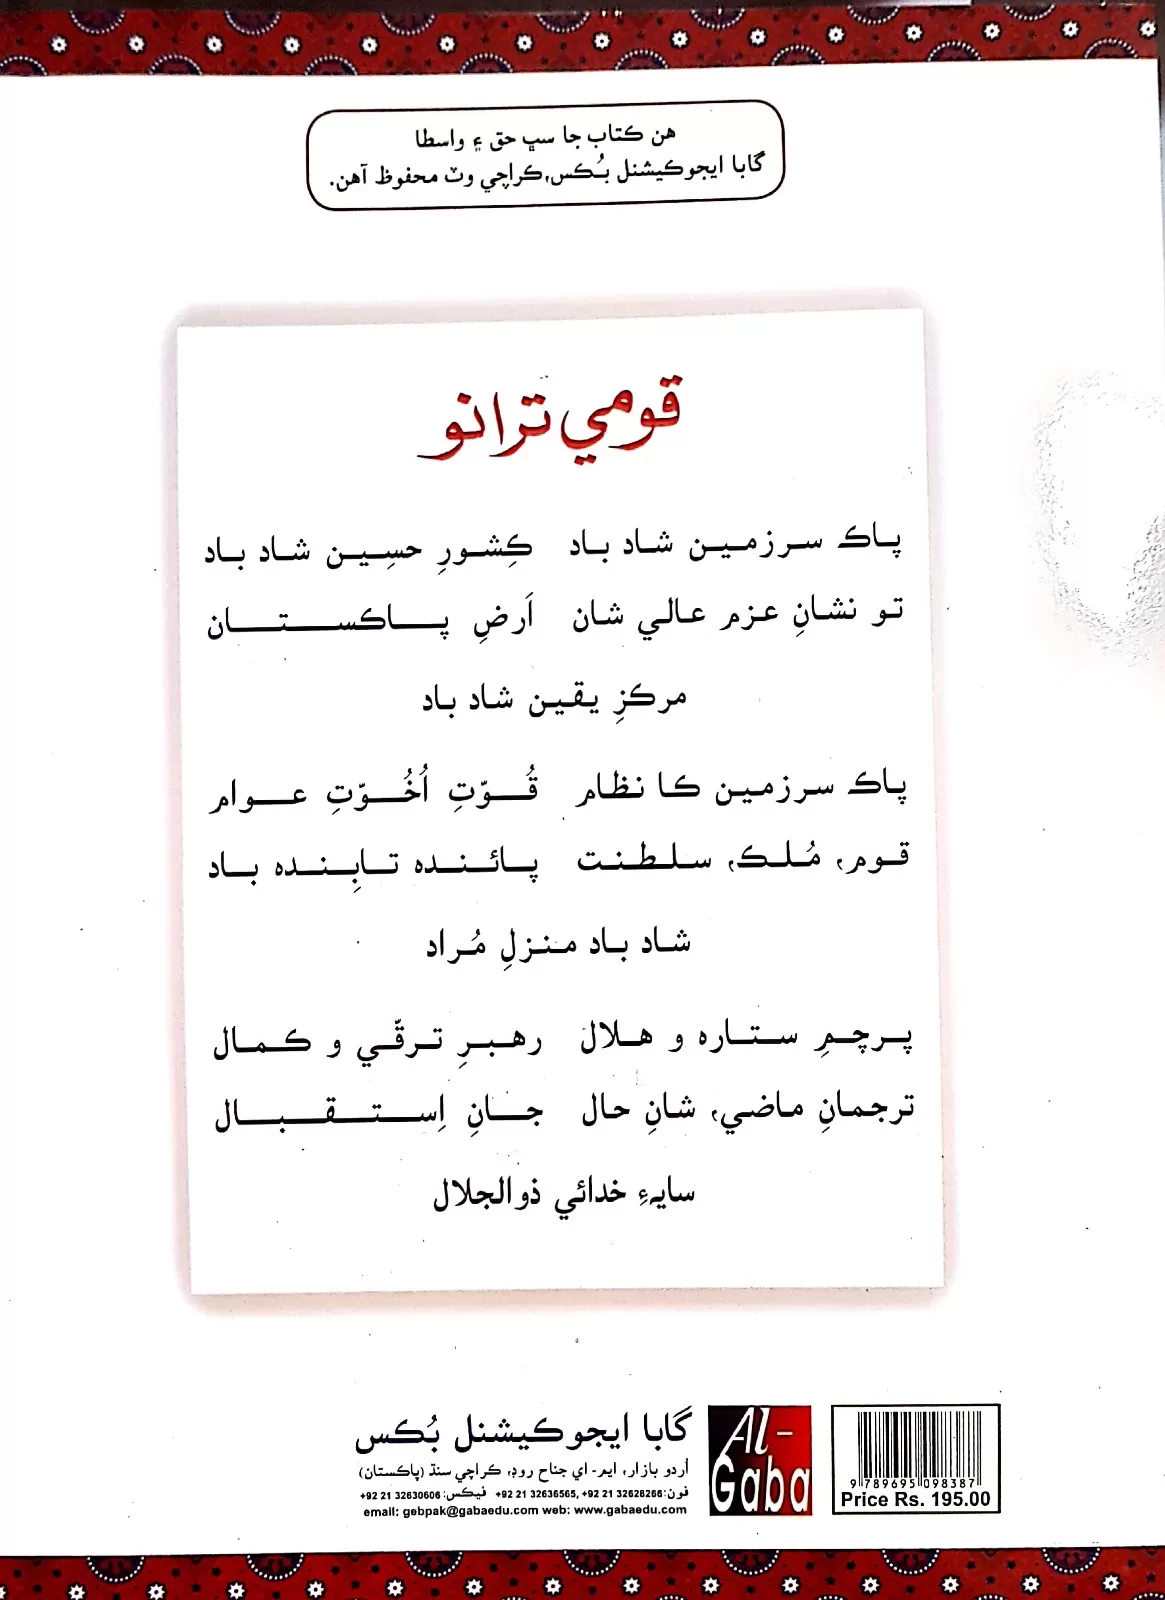 هن ڪتاب جا سڀ حق ۽ واسطا
گابا ايجوڪيشنل بُڪس، ڪراچي وٽ محفوظ آهن.
قومي ترانو
پاڪ سرزمين شاد باد ڪِشورِ حسِين شاد باد
تو نشانِ عزم عالي شان اَرضِ پاڪستان
مرڪزِ يقين شاد باد
پاڪ سرزمين ڪا نظام قُوّتِ اُخُوّتِ عوام
قوم، مُلڪ، سلطنت پائنده تابِنده باد
شاد باد منزلِ مُراد
پرچمِ ستاره و هلال رهبرِ ترقّي و ڪمال
ترجمانِ ماضي، شانِ حال جانِ اِستقبال
سايهءِ خدائي ذوالجلال
گابا ايجوڪيشنل بُڪس
اُردو بازار، ايم- اي جناح روڊ، ڪراچي سنڌ (پاڪستان)
فون: 92 21 32628266+ ,92 21 32636565+ فيڪس: 92 21 32630606+
email: gebpak@gabaedu.com web: www.gabaedu.com
Al-
Gaba
9 789695 098387
Price Rs. 195.00